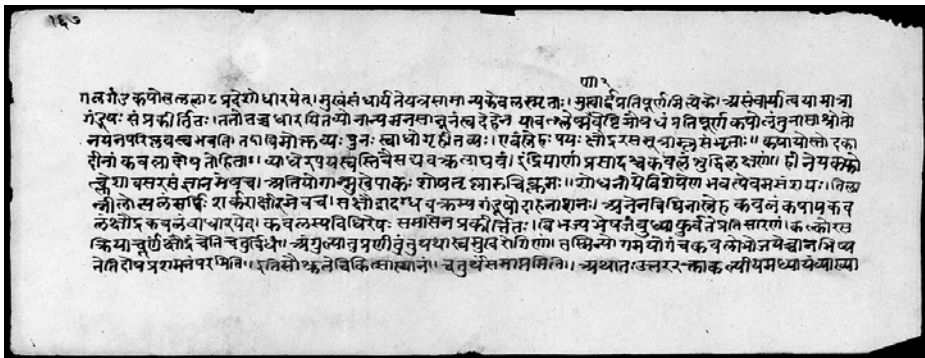 १६७
गलगंडकपोलललाटप्रदेशोधारयेत्।मुखेसंधार्यतेयत्रसामान्यकेवलस्मृताः।मुखार्द्धप्रतिपूर्णमित्येके।असंचार्यात्वयामात्रा
गंडूषः संप्रकीर्तितः।ततोतश्चधारयितव्योनान्यमनसानूनंत्वदेहेनयावत्श्लेष्मवेष्टितौषधंप्रतिपूर्णकपोलंतुनासाश्रोतो
नयनपरिप्लवस्वभवति। तदाविमोक्तव्यः पुनः स्वाधोगृहीतव्यः।एवंस्नेहः पयः क्षौद्ररसमूत्राम्लसंभृताः॥कषायोस्तोदका
हीनांकवलादोषतोहिताः॥व्याधेरपचयस्तुष्टिवैसद्यवक्त्रलाघवं।इंद्रियाणांप्रसादश्चकवलेशुद्धिलक्षणं॥हीनेयकफो
त्क्लेशावसरसंज्ञानमेवच।अतियोगान्मुखेपाकःशोषतृष्णारुचिक्लमः॥शोधनीयेविशेषेणभवत्येवमसंशयः।तिला
न्नीलोत्पलंसर्पिः शर्कराक्षीरमेवच।सक्षौद्रादग्धवक्त्रस्यगंडूषोदाहनाशनः।अनेनविधिनास्नेहकवलंकषायकव
लक्षौद्रकवलंवाधारयेद्।कवलस्यविधिरेषःसमासेनप्रकीर्त्तितः।विभज्यभेषजंबुध्याकुर्वतेप्रतिसारणं।कल्कोरस
क्रियाचूर्णक्षौद्रंचेतिचतुर्द्धिधं॥अंगुल्यातुप्रणीतंतुयथास्वमुखरोगिणां।तस्मिन्योगमयोगंचकवलोभोजयेच्चानभिष्य
नेतिदोषप्रशमनंपरमिति॥इतिसौश्रुतेचिकित्सास्थानं॥चतुर्थंसमाप्तमिति॥अथातःउत्तररक्ताकल्पीयमध्यायंव्याख्या